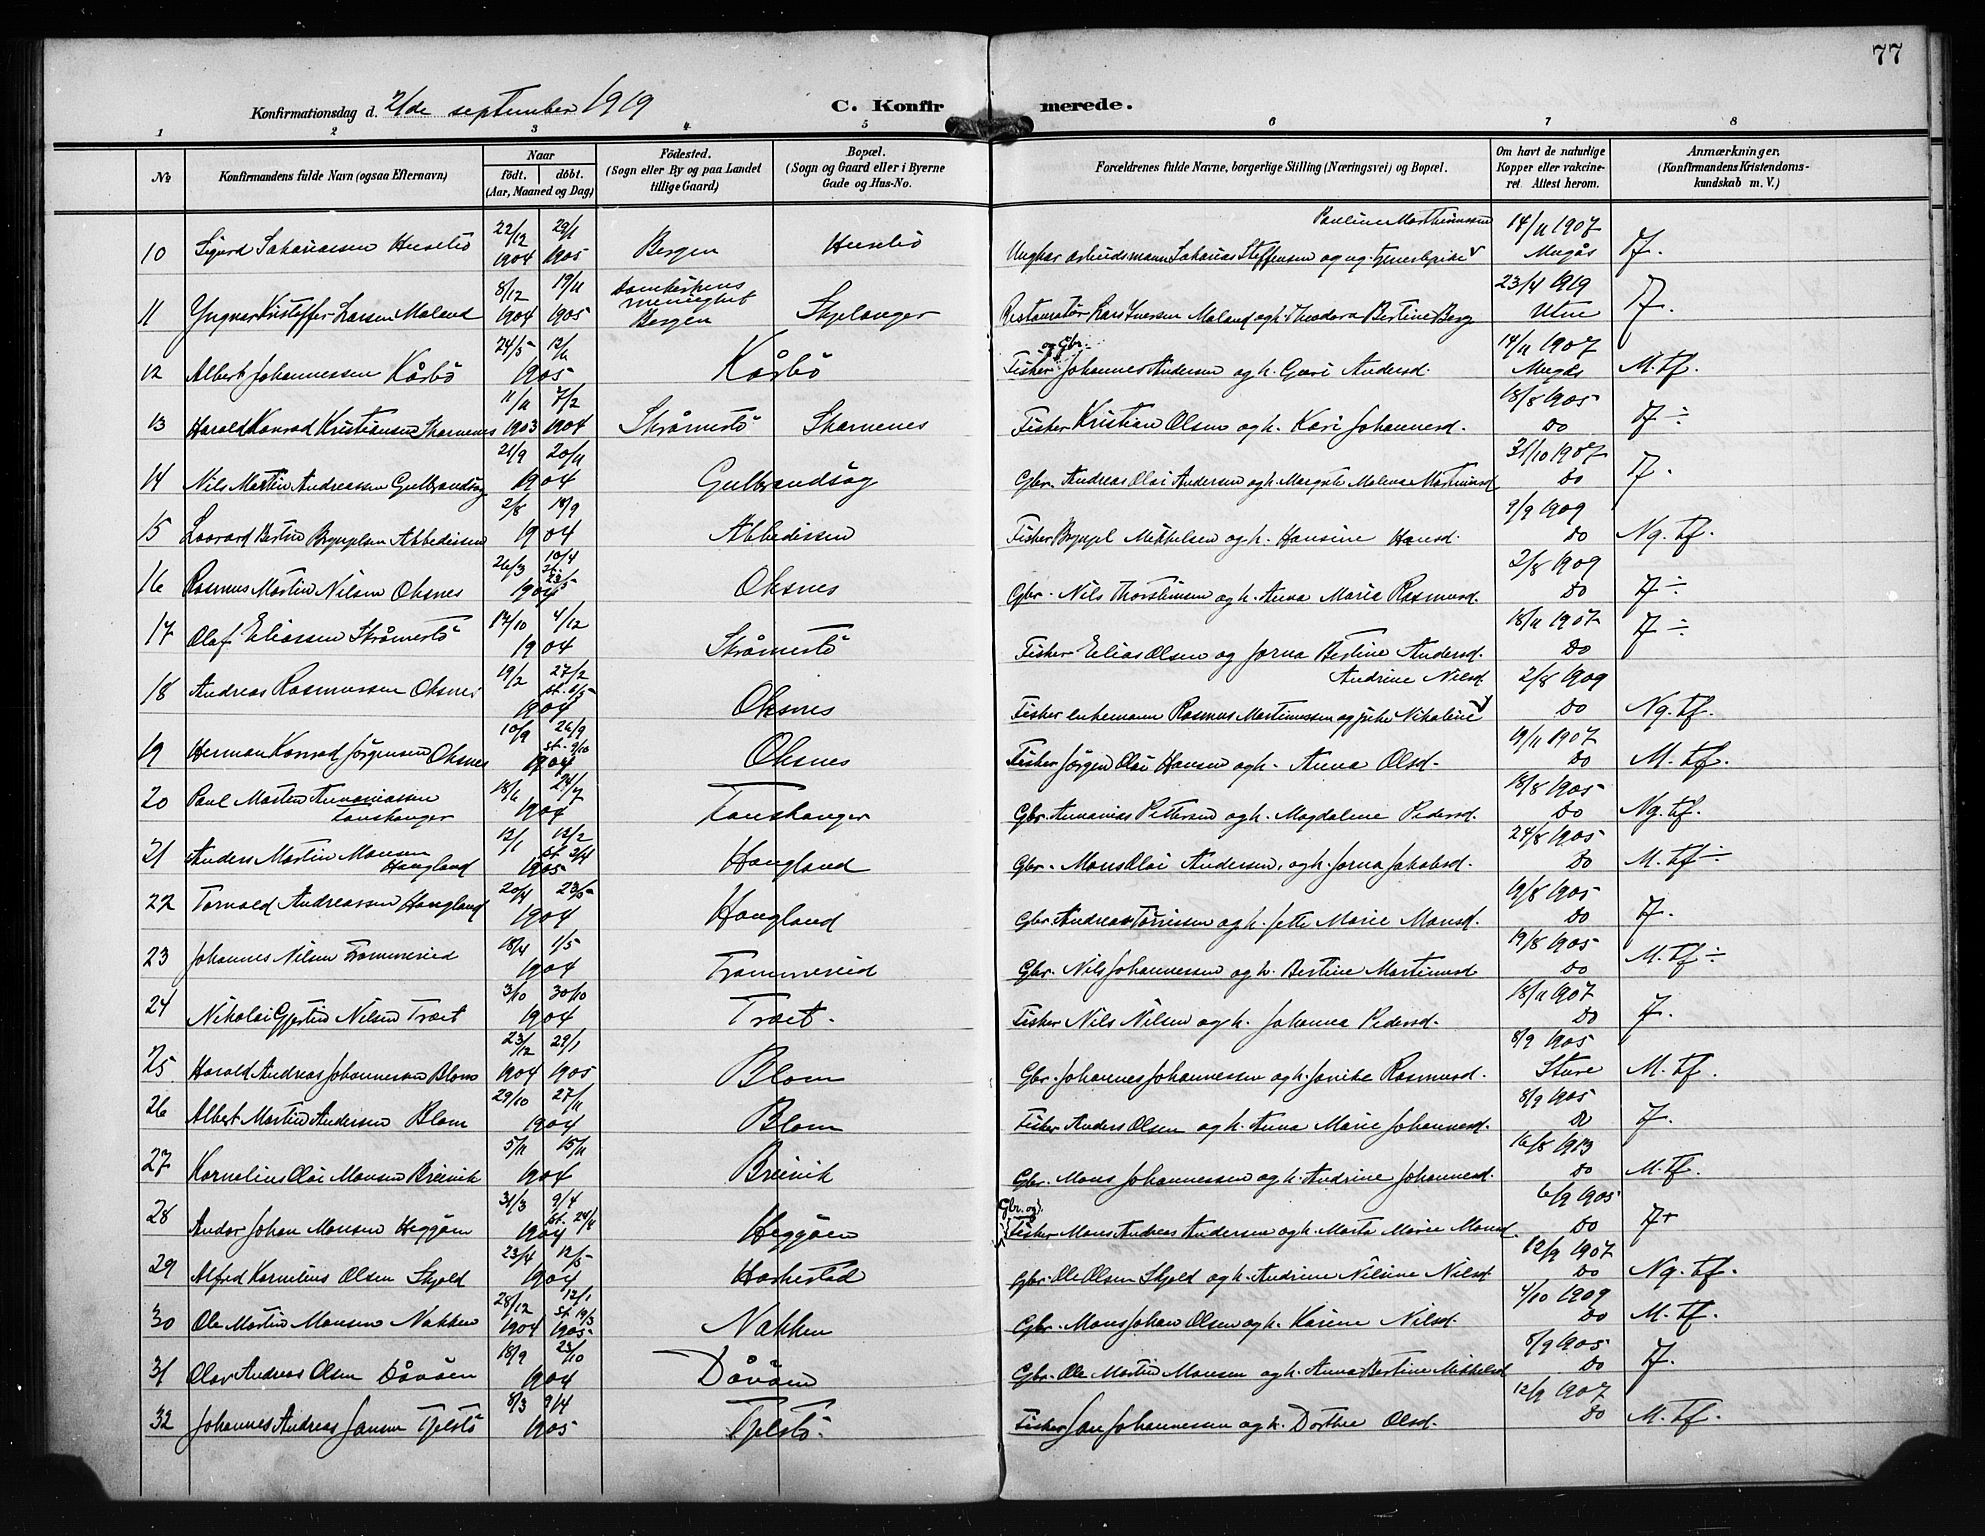 77
Konfirmationsdag d. 21de september 1919 C. Konfirmerede.
1 2 3 4 5 6 7 8
№ Konfirmandens fulde Navn (ogsaa Efternavn) Naar födt. döbt. (Aar, Maaned og Dag) Födested. (Sogn eller By og paa Landet tillige Gaard) Bopæl. (Sogn og Gaard eller i Byerne Gade og Hus-No. Forældrenes fulde Navne, borgerlige Stilling (Næringsvei) og Bopæl. Om havt de naturlige Kopper eller vakcineret. Attest herom. Anmærkninger. (Konfirmandens Kristendomskundskab m. V.)
10 Sigurd Sakariassen Husebö 22/12 1904 29/1 1905 Bergen Husebö Ungkar arbeidsmann Sakarias Steffensen og ug. Pauline Marthinussen 14/11 1907 Mugås Tf.
11 Yngvar Kristoffer Larsen Moland 8/12 1904 19/11 1905 Domkirkens menighet Bergen Skjelanger Restauratör Lars Iversen Moland og h. Theodora Bertine Berg 23/4 1919 Utne Tf.
12 Albert Johannessen Kårbö 24/5 12/11 1905 Kårbö Fisker og Gbr. Johannes Andersen og h. Guri Andersd. 14/11 1907 Mugås M. tf.
13 Harald Konrad Kristiansen Skarnenes 11/11 1903 7/2 1904 Skråmestö Skarnenes Fisker Kristian Olsen og h. Kari Johannesd. 18/8 1905 Do Tf ÷
14 Nils Martin Andreassen Gulbrandsög 21/9 20/11 1904 Gulbrandsög Gbr. Andreas Olai Andersen og h. Margrete Malena Martinusd 31/10 1907 Do Tf.
15 Bertin Brynjelsen Abbedissen 2/8 18/9 1904 Abbedissen Fisker Brynjel Mikkelsen og h. Hansine Hansd. 9/9 1909 Do Ng. tf.
16 Rasmus Martin Nilsen Oksnes 26/3 10/4 st. 23/5 1904 Oksnes Gbr. Nils Thorsteinsen og h. Anna Marie Rasmusd. 2/8 1909 Do Tf ÷
17 Olaf Eliassen Skråmestö 17/10 4/12 1904 Skråmestö Fisker Elias Olsen og Jorna Bertine Andersd. 18/11 1907 Do Tf ÷
18 Andreas Rasmussen Oksnes 19/2 27/2 1904 Oksnes Fisker enkemann Rasmus Martinussen og pike Nikoline Andrine Nilsd 2/8 1909 Do Ng. tf.
19 Herman Konrad Jörgensen Oksnes 10/9 26/9 st. 9/10 1904 Oksnes Fisker Jörgen Olai Hansen og h. Anna Olsd. 19/11 1907 Do M. tf.
20 Paul Martin Annaniassen Tanskanger 18/6 24/7 1904 Tanskanger Gbr. Annanias Pettersen og h. Magdalene Pedersd. 18/8 1905 Do Ng. tf.
21 Anders Martin Monsen Haugland 12/1 12/2 st. 2/4 1905 Haugland Gbr. Mons Olai Andersen, og h. Jorna Jakobsd. 24/8 1905 Do M. tf ÷
22 Torvald Andreassen Haugland 20/4 23/5 1904 Haugland Gbr. Andreas Törrissen og h. Jette Marie Monsd. 19/8 1905 Do Tf.
23 Johannes Nilsen Trommereid 18/4 1/5 1904 Trommereid Gbr. Nils Johannessen og h. Bertine Martinusd 19/8 1905 Do M. tf ÷
24 Nikolai Gjertin Nilsen Træet 3/10 30/10 1904 Træet. Fisker Nils Nilsen og h. Johanna Pedersd. 18/11 1907 Do Tf.
25 Harald Andreas Johannessen Blom 23/12 1904 29/1 1905 Blom Gbr. Johannes Johannessen og h. Janike Rasmusd. 8/9 1905 Sture M. tf.
26 Albert Martin Andersen Blom 29/10 27/11 1904 Blom Fisker Anders Olsen og h. Anna Marie Johannesd. 8/9 1905 Do Tf.
27 Kornelius Olai Monsen Breivik 5/11 15/11 1904 Breivik Gbr. Mons Johannessen og h. Andrine Johannesd. 16/8 1913 Do M. tf.
28 Andor Johan Monsen Heggöen 31/3 9/4 st. 24/4 1904 Heggöen Gbr. og Fisker Mons Andreas Andersen og h. Marta Marie Monsd. 6/9 1905 Do Tf +
29 Alfred Kornelius Olsen Skjold 23/4 12/5 1904 Harkestad Gbr. Ole Olsen Skjold og h. Andrine Nilsine Nilsd 12/9 1907 Do Ng. tf.
30 Ole Martin Monsen Nakken 28/12 1904 12/1 st. 19/3 1905 Nakken Gbr. Mons Johan Olsen og h. Karine Nilsd. 4/10 1909 Do M. tf.
31 Olav Andreas Olsen Dåvöen 18/9 23/10 1904 Dåvöen Gbr. Ole Martin Monsen og h. Anna Bertine Mikkelsd 8/9 1905 Do Tf.
32 Johannes Andreas Jansen Tjelstö 8/3 9/4 1905 Tjelstö. Fisker Jan Johannessen og h. Dorthea Olsd. 12/9 1907 Do M. tf.